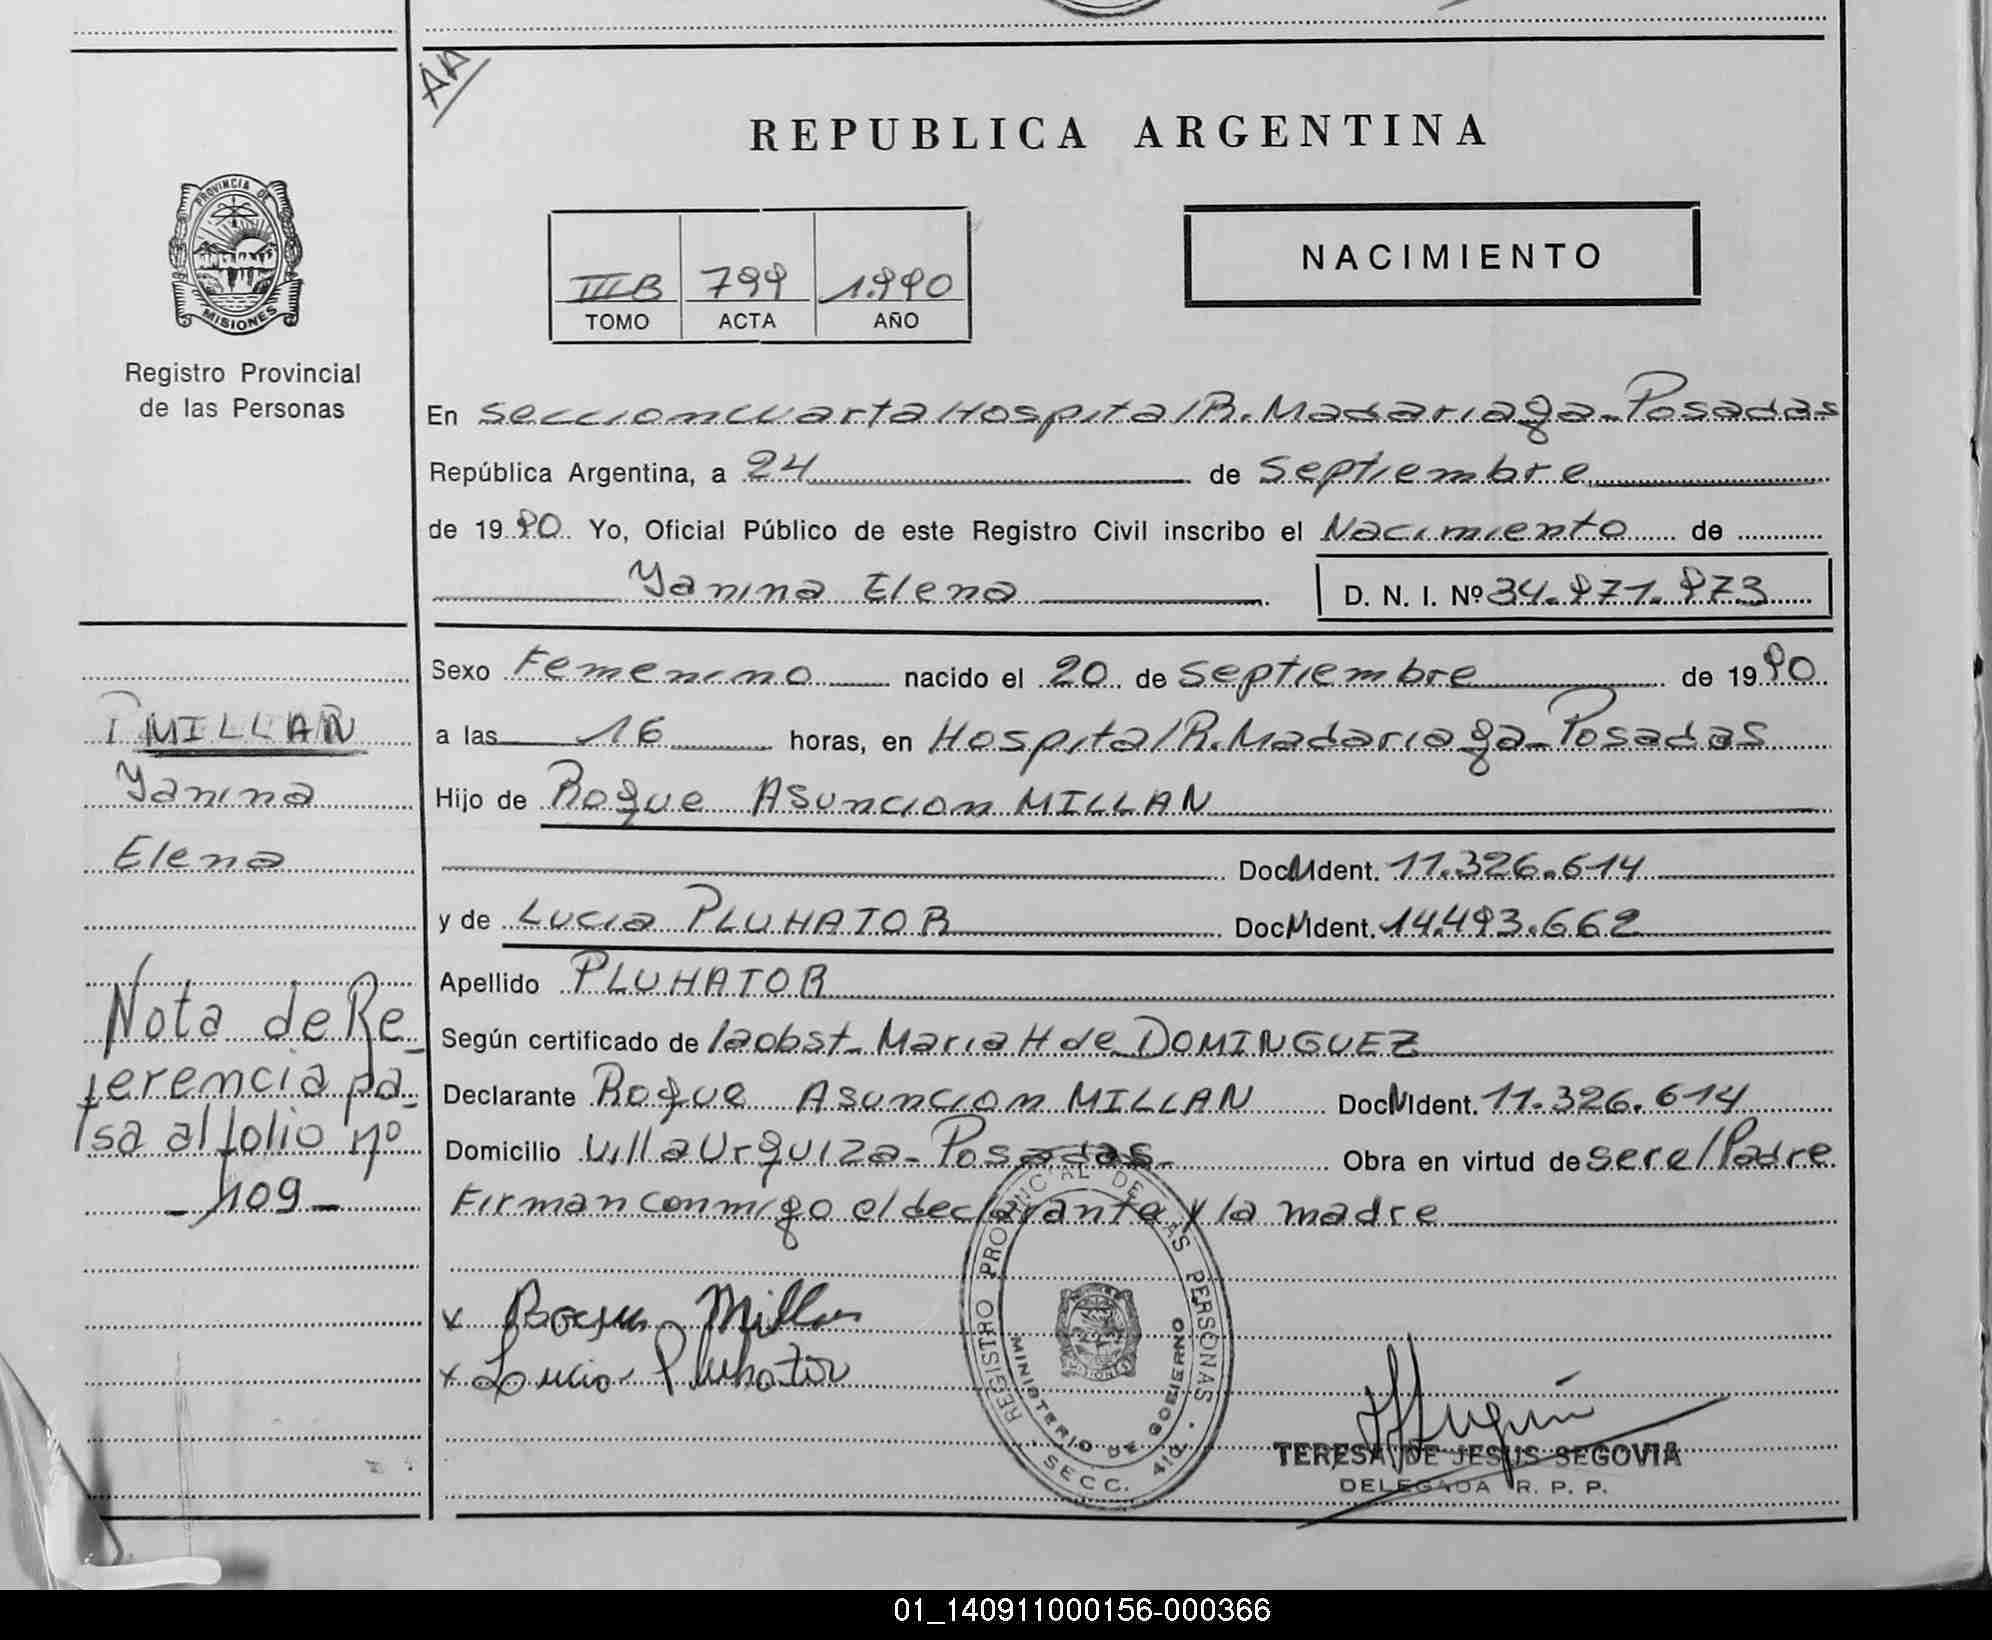 AA
REPUBLICA ARGENTINA
NACIMIENTO
IIIB 799 1.990
TOMO ACTA AÑO
PROVINCIA DE
MISIONES
Registro Provincial
de las Personas
En Seccion Cuarta Hospital R. Madariaga - Posadas
República Argentina, a 24 de Septiembre
de 1990 Yo, Oficial Público de este Registro Civil inscribo el Nacimiento de
Yanina Elena D. N. I. Nº 34.971.973
Sexo Femenino nacido el 20 de Septiembre de 1990
a las 16 horas, en Hospital R. Madariaga - Posadas
Hijo de Roque Asuncion MILLAN
DocMIdent. 11.326.614
y de Lucia PLUHATOR DocMIdent. 14.493.662
Apellido PLUHATOR
Según certificado de la obst. Maria H de DOMINGUEZ
Declarante Roque Asuncion MILLAN DocMIdent. 11.326.614
Domicilio Villa Urquiza - Posadas - Obra en virtud de ser el Padre
Firman conmigo el declarante y la madre
MILLAN
Yanina
Elena
Nota de Re_
ferencia pa_
sa al folio nº
- 109 -
x Roque Millan
x Lucia Pluhator
REGISTRO PROVINCIAL DE LAS PERSONAS
MINISTERIO DE GOBIERNO
SECC. 4ta.
TERESA DE JESUS SEGOVIA
DELEGADA R. P. P.
01_140911000156-000366